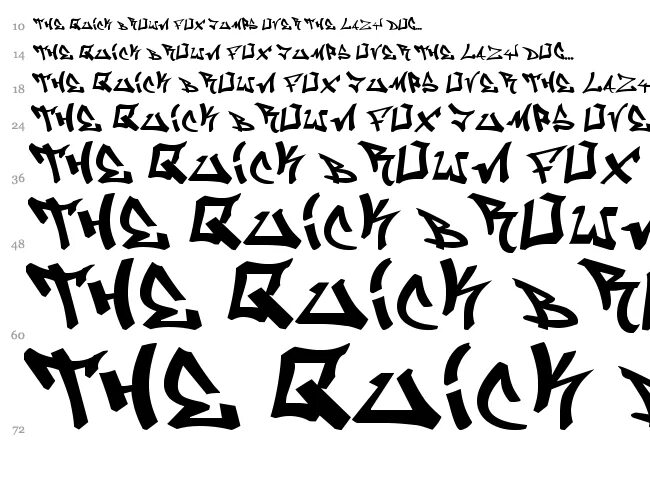 10 THE QUICK BROWN FOX JUMPS OVER THE LAZY DOG...
14 THE QUICK BROWN FOX JUMPS OVER THE LAZY DOG...
18 THE QUICK BROWN FOX JUMPS OVER THE LAZY
24 THE QUICK BROWN FOX JUMPS OVE
36 THE QUICK BROWN FOX
48 THE QUICK BROWN
60 THE QUICK BR
72 THE QUICK